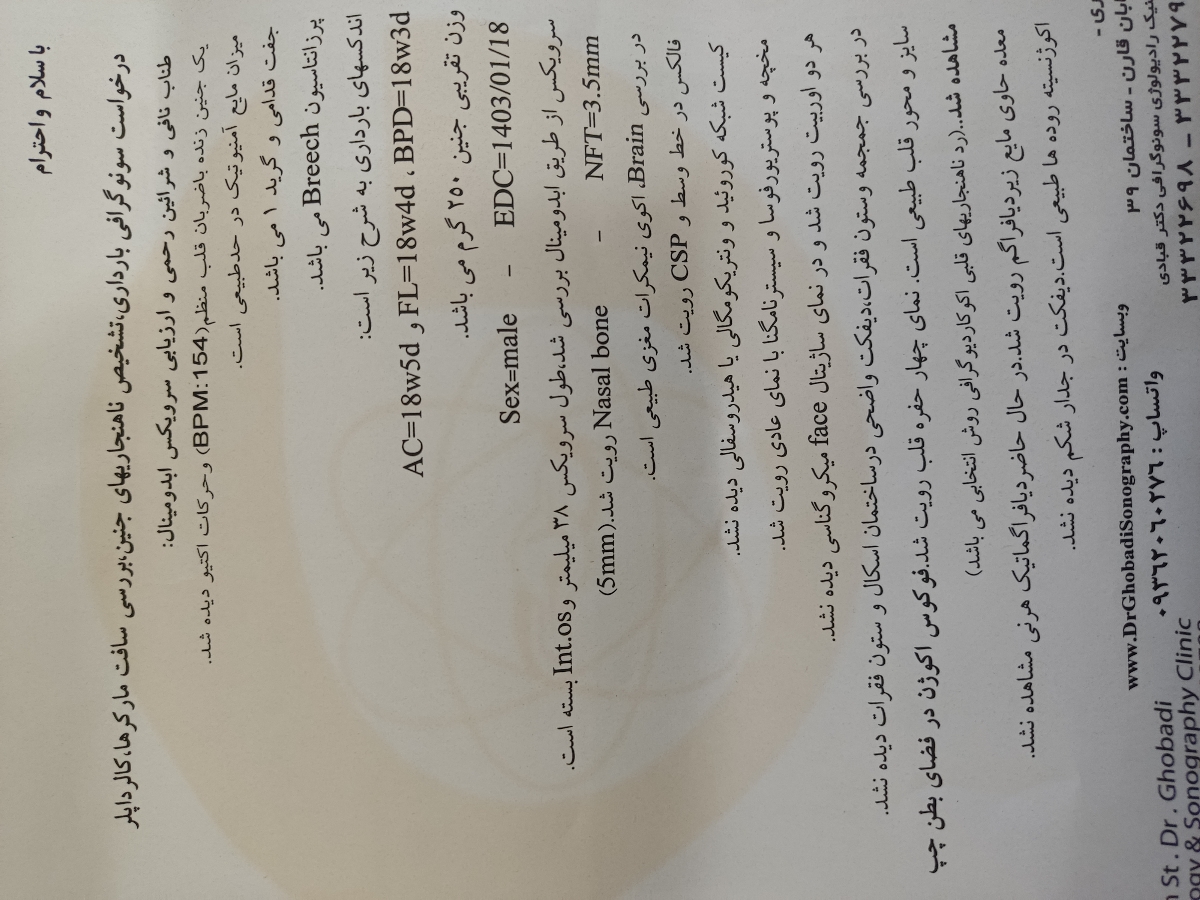 با سلام و احترام
درخواست سونوگرافی بارداری،تشخیص ناهنجاریهای جنین،بررسی سافت مارکرها،کالرداپلر
طناب نافی و شرائین رحمی و ارزیابی سرویکس ابدومینال:
یک جنین زنده باضربان قلب منظم(BPM:154) وحرکات اکتیو دیده شد.
میزان مایع آمنیوتیک در حدطبیعی است.
جفت قدامی و گرید ۱ می باشد.
پرزانتاسیون Breech می باشد.
اندکسهای بارداری به شرح زیر است:
AC=18w5d و FL=18w4d ، BPD=18w3d
وزن تقریبی جنین ۲۵۰ گرم می باشد.
Sex=male – EDC=1403/01/18
سرویکس از طریق ابدومینال بررسی شد،طول سرویکس ۳۸ میلیمتر و Int.os بسته است.
(5mm).رویت شد Nasal bone – NFT=3.5mm
در بررسی Brain، اکوی نیمکرات مغزی طبیعی است.
فالکس در خط وسط و CSP رویت شد.
کیست شبکه کوروئید و ونتریکومگالی یا هیدروسفالی دیده نشد.
مخچه و پوستریورفوسا و سیسترنامگنا با نمای عادی رویت شد.
هر دو اوربیت رویت شد و در نمای ساژیتال face میکروگناسی دیده نشد.
در بررسی جمجمه وستون فقرات،دیفکت واضحی درساختمان اسکال و ستون فقرات دیده نشد.
سایز و محور قلب طبیعی است. نمای چهار حفره قلب رویت شد.فوکوس اکوژن در فضای بطن چپ
مشاهده شد..(رد ناهنجاریهای قلبی اکوکاردیوگرافی روش انتخابی می باشد)
معده حاوی مایع زیردیافراگم رویت شد.در حال حاضردیافراگماتیک هرنی مشاهده نشد.
اکوژنسیته روده ها طبیعی است.دیفکت در جدار شکم دیده نشد.
ری -
ابان قارن - ساختمان ۳۹
نیک رادیولوژی سونوگرافی دکتر قبادی
۳۳۳۲۲۶۹۸ – ۳۳۳۲۲۷۹
وبسایت : www.DrGhobadiSonography.com
واتساپ : ۰۹۳۶۲۰۶۰۲۷۶
n St. Dr. Ghobadi
ogy & Sonography Clinic